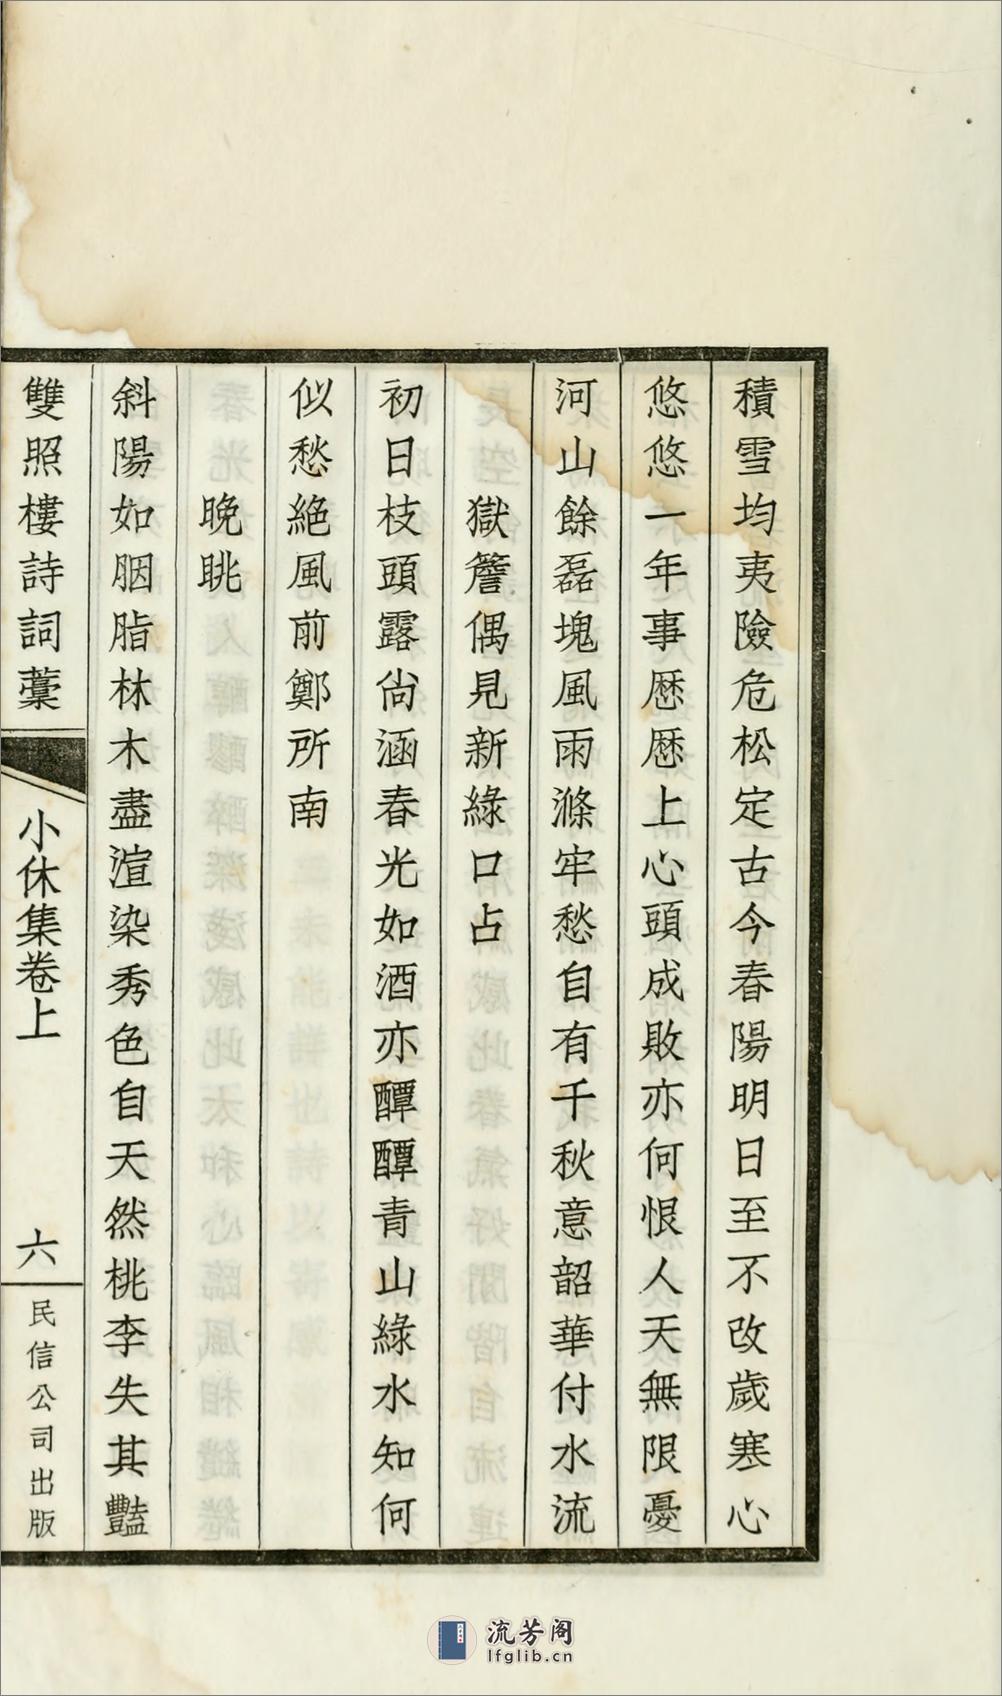 積雪均夷險危松定古今春陽明日至不改歲寒心
悠悠一年事歷歷上心頭成敗亦何恨人天無限憂
河山餘磊塊風雨滌牢愁自有千秋意韶華付水流
獄簷偶見新綠口占
初日枝頭露尙涵春光如酒亦醰醰青山綠水知何
似愁絕風前鄭所南
晚眺
斜陽如胭脂林木盡渲染秀色自天然桃李失其豔
雙照樓詩詞藳
小休集卷上
六
民信公司出版
流芳阁
lfglib.cn